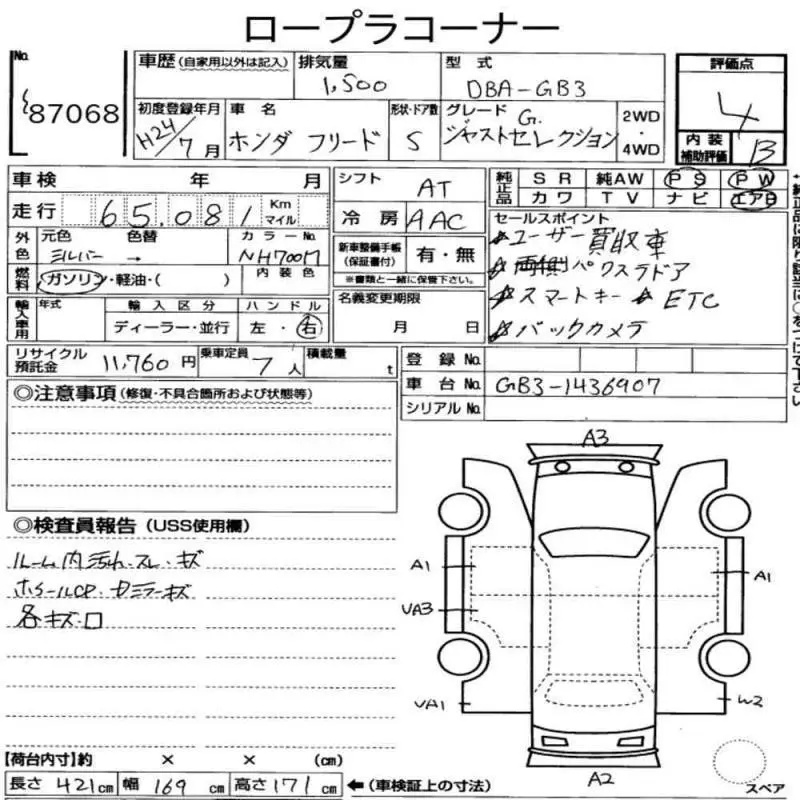 ロープラコーナー
No. 87068
車歴 (自家用以外は記入)
排気量 1,500
型式 DBA-GB3
評価点 4
初度登録年月 H24/7月
車名 ホンダ フリード
形状・ドア数 5
グレード G. ジャストセレクション
2WD・4WD
内装補助評価 B
車検 年 月
走行 65,081 Km マイル
シフト AT
冷房 AAC
純正品 SR 純AW PS PW
カワ TV ナビ エアB
外色 元色 シルバー 色替 → カラーNo. NH700M
燃料 ガソリン・軽油・( ) 内装色
新車整備手帳(保証書付) 有・無
※書類と一緒に保管下さい。
セールスポイント
☆ユーザー買取車
☆両側パワスラドア
☆スマートキー ☆ETC
☆バックカメラ
輸入車用 年式 輸入区分 ディーラー・並行 ハンドル 左・右
名義変更期限 月 日
リサイクル預託金 11,760円
乗車定員 7人
積載量 t
登録No.
車台No. GB3-1436907
シリアルNo.
◎注意事項 (修復・不具合箇所および状態等)
◎検査員報告 (USS使用欄)
ルーム内汚れ・スレ・キズ
ホイールCP・ドミラーキズ
各キズ・凹
A3
A1
A1
UA3
UA1
W2
A2
スペア
【荷台内寸】約 × × (cm)
長さ 421cm 幅 169cm 高さ 171cm ←(車検証上の寸法)